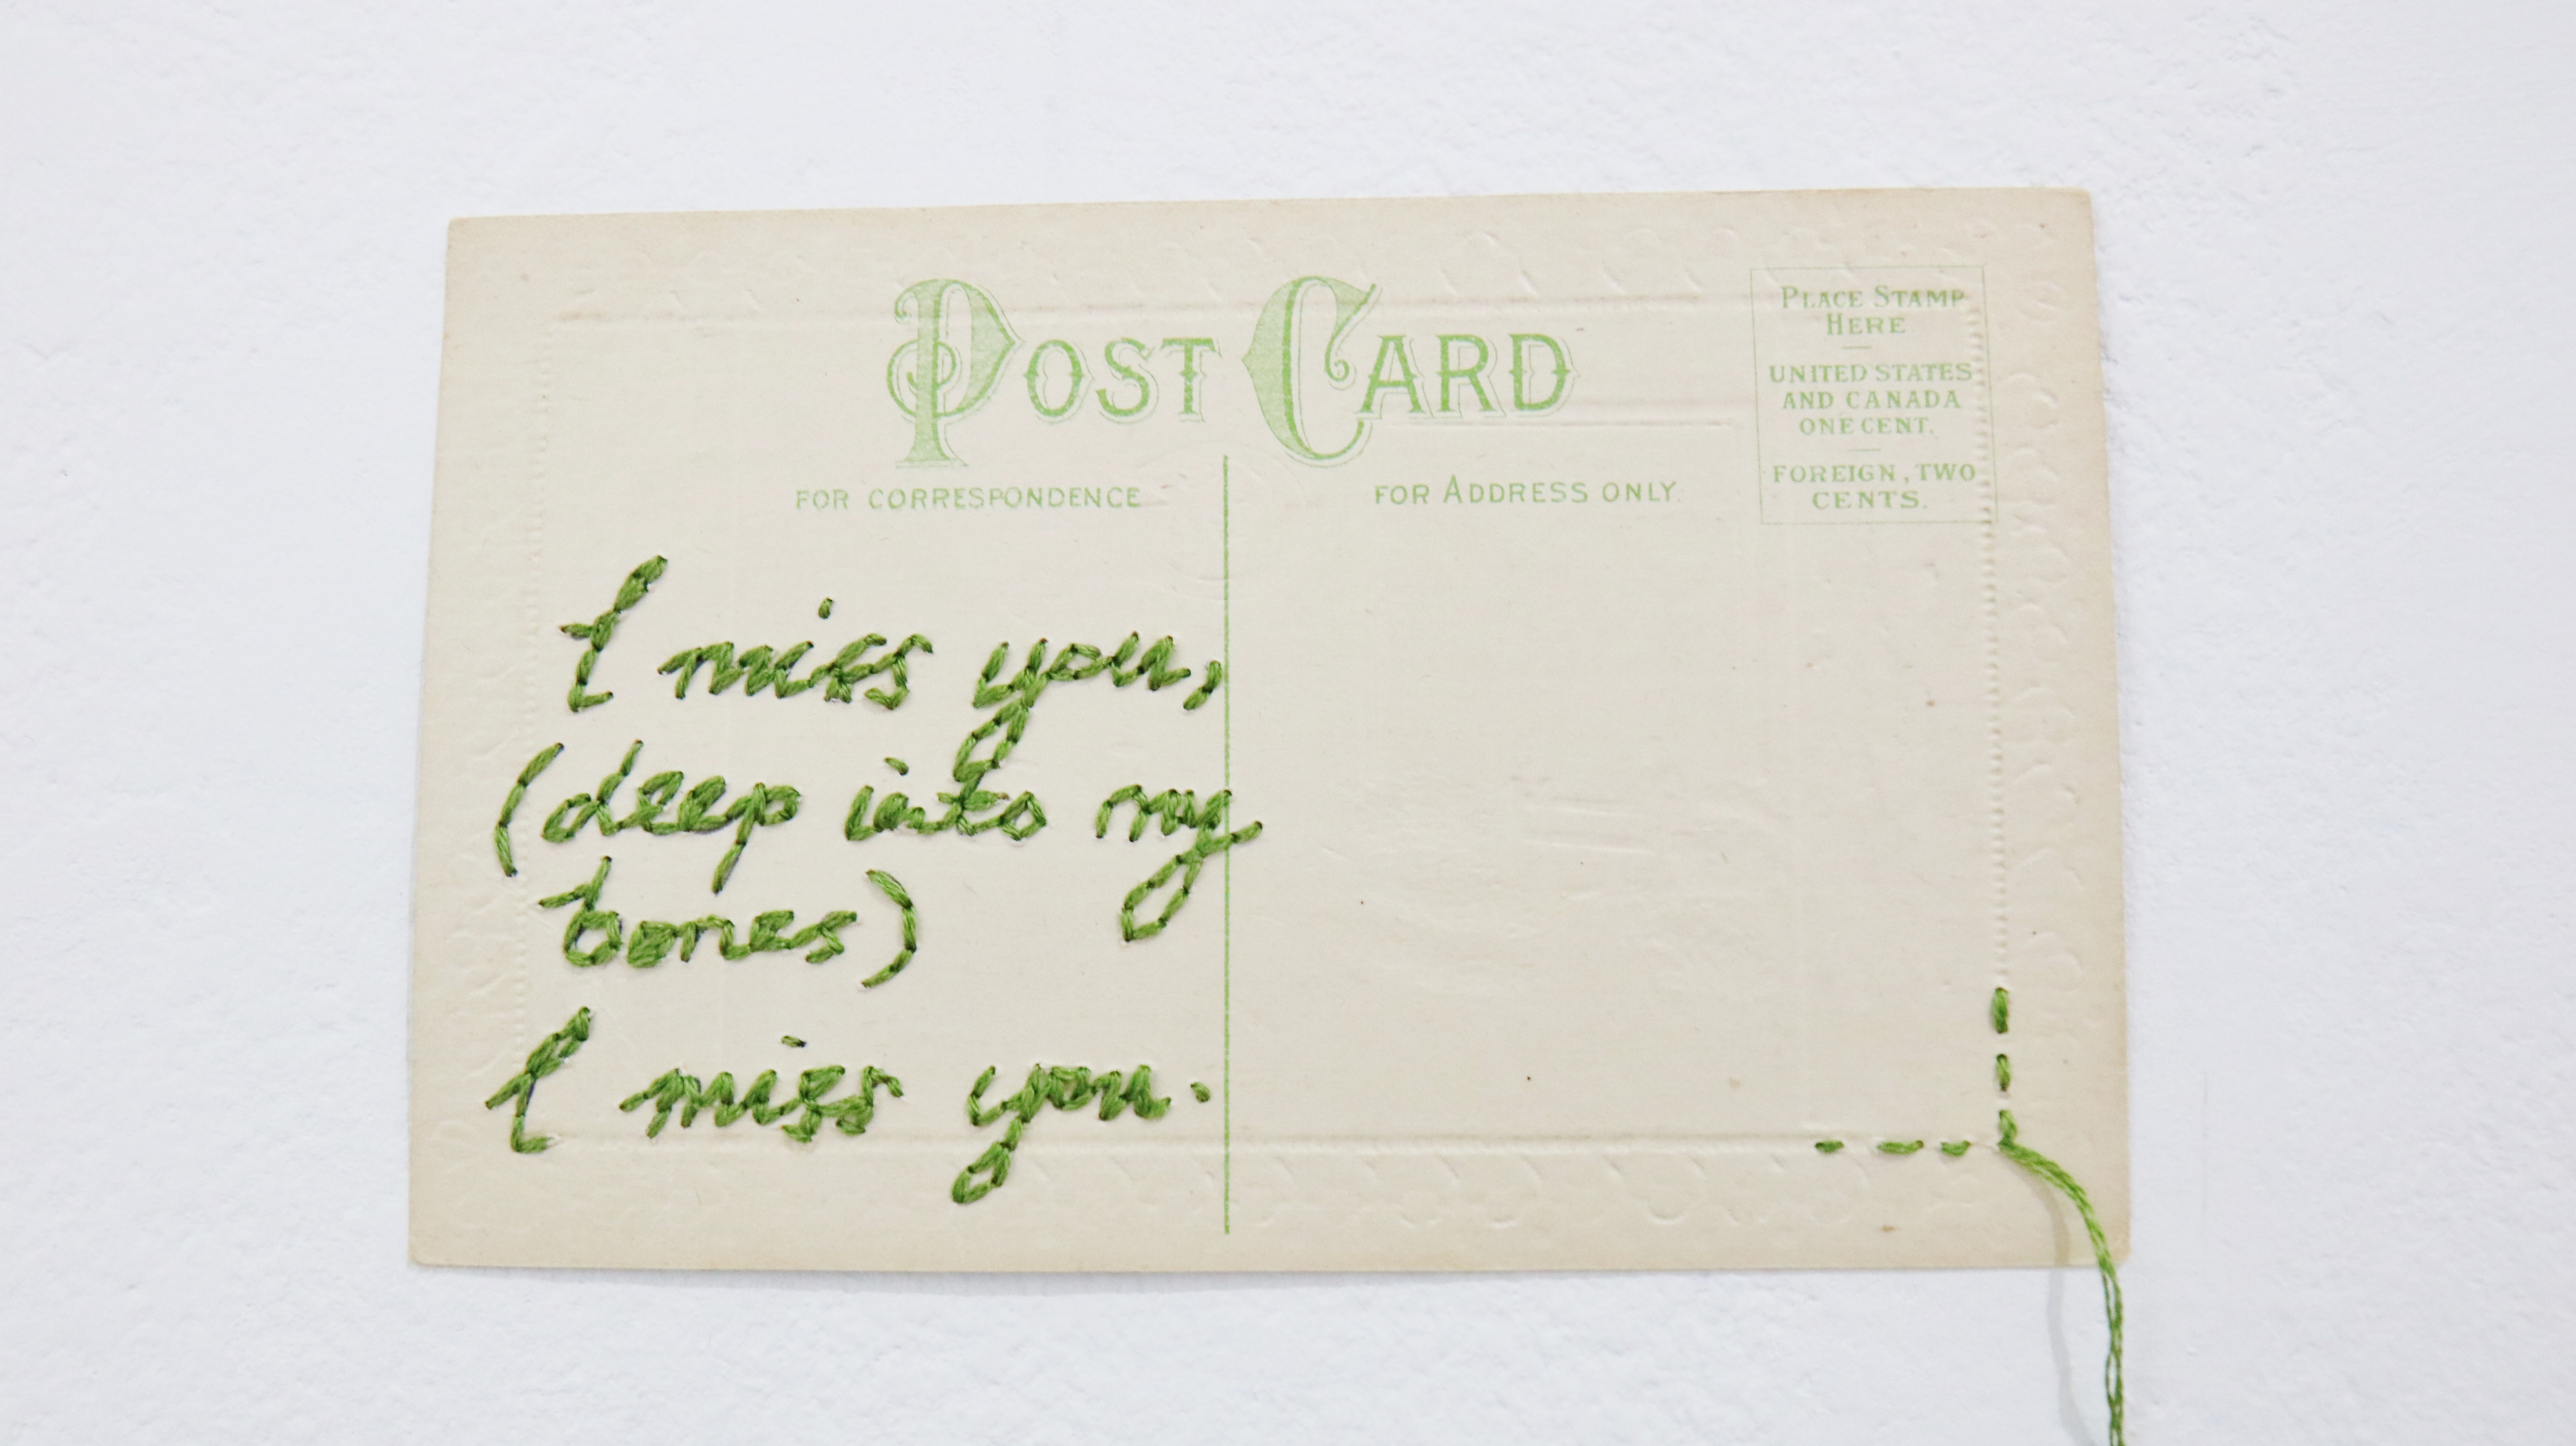 POST CARD
PLACE STAMP
HERE
UNITED STATES
AND CANADA
ONE CENT.
FOREIGN, TWO
CENTS.
FOR CORRESPONDENCE
FOR ADDRESS ONLY.
I miss you,
(deep into my
bones)
I miss you.